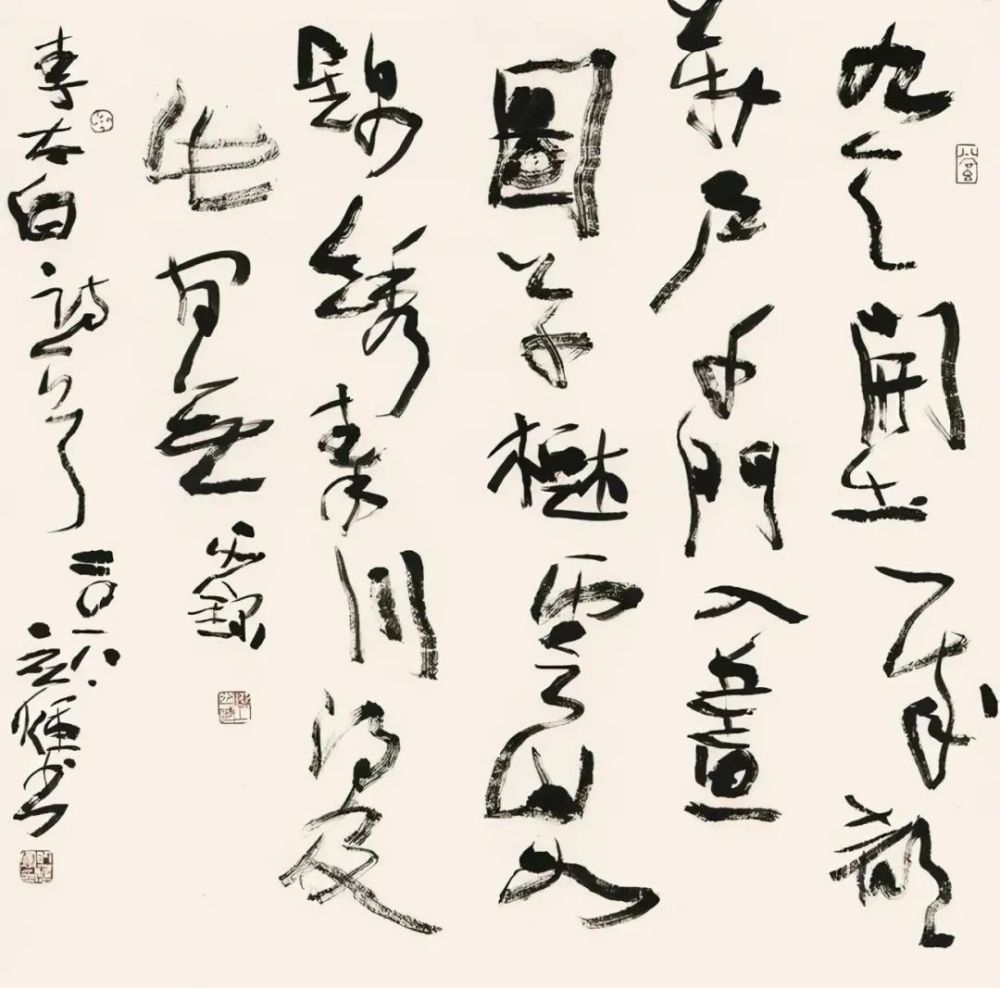 九天開出一成都
萬戶千門入畫
圖草樹雲山如
錦綉秦川得及
此間無
李太白詩一首 二〇一八 書